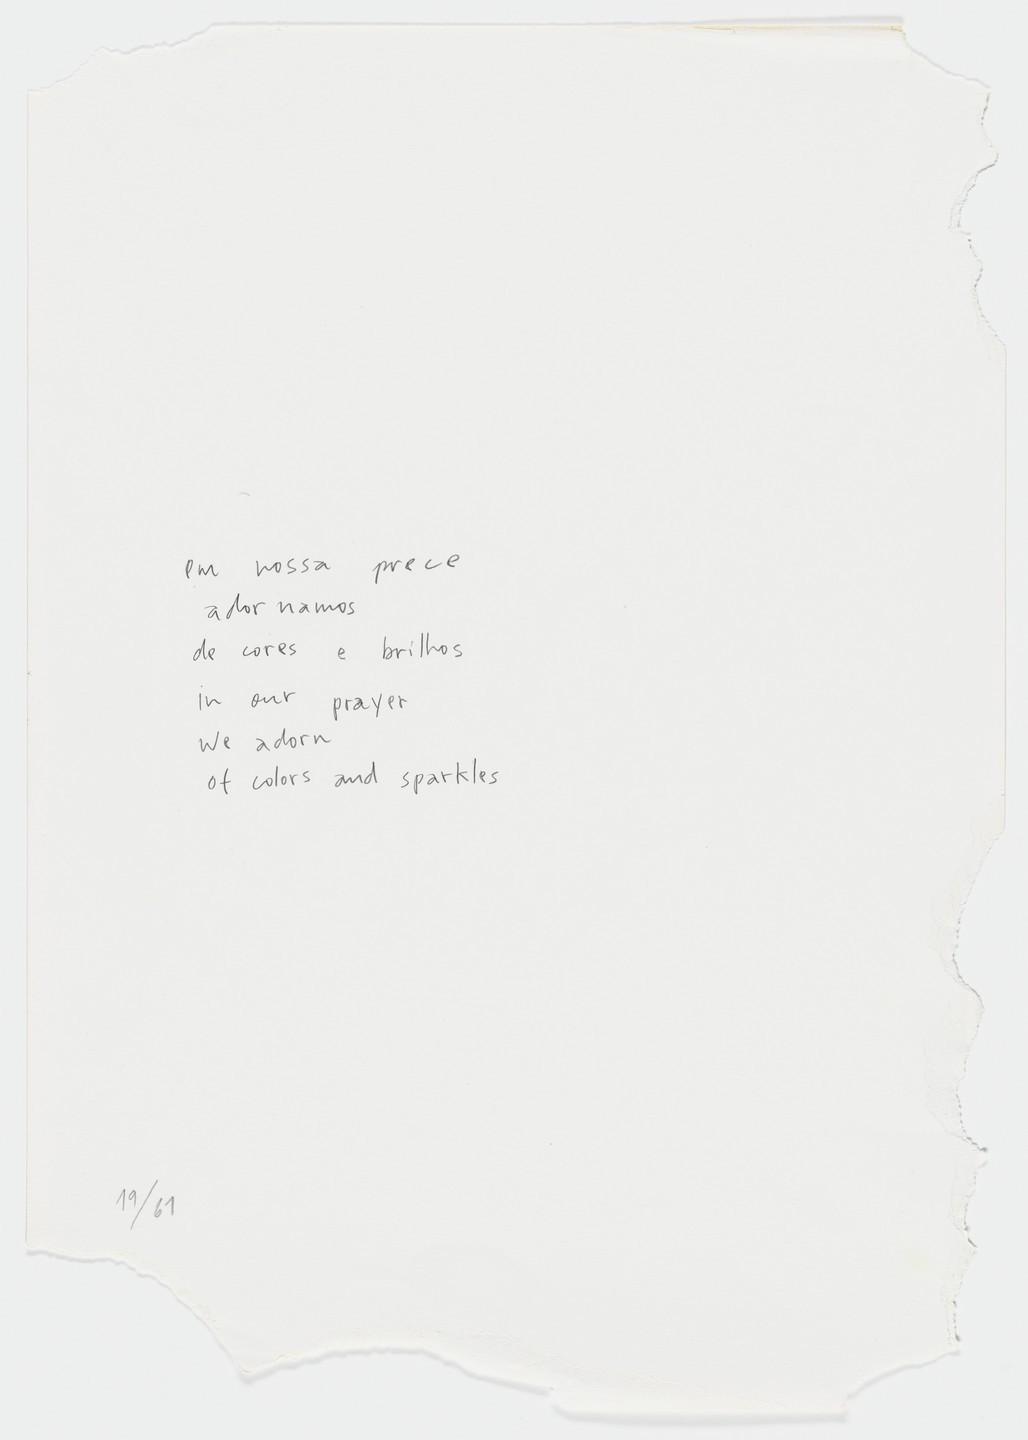 em nossa prece
adornamos
de cores e brilhos
in our prayer
we adorn
of colors and sparkles
19/61